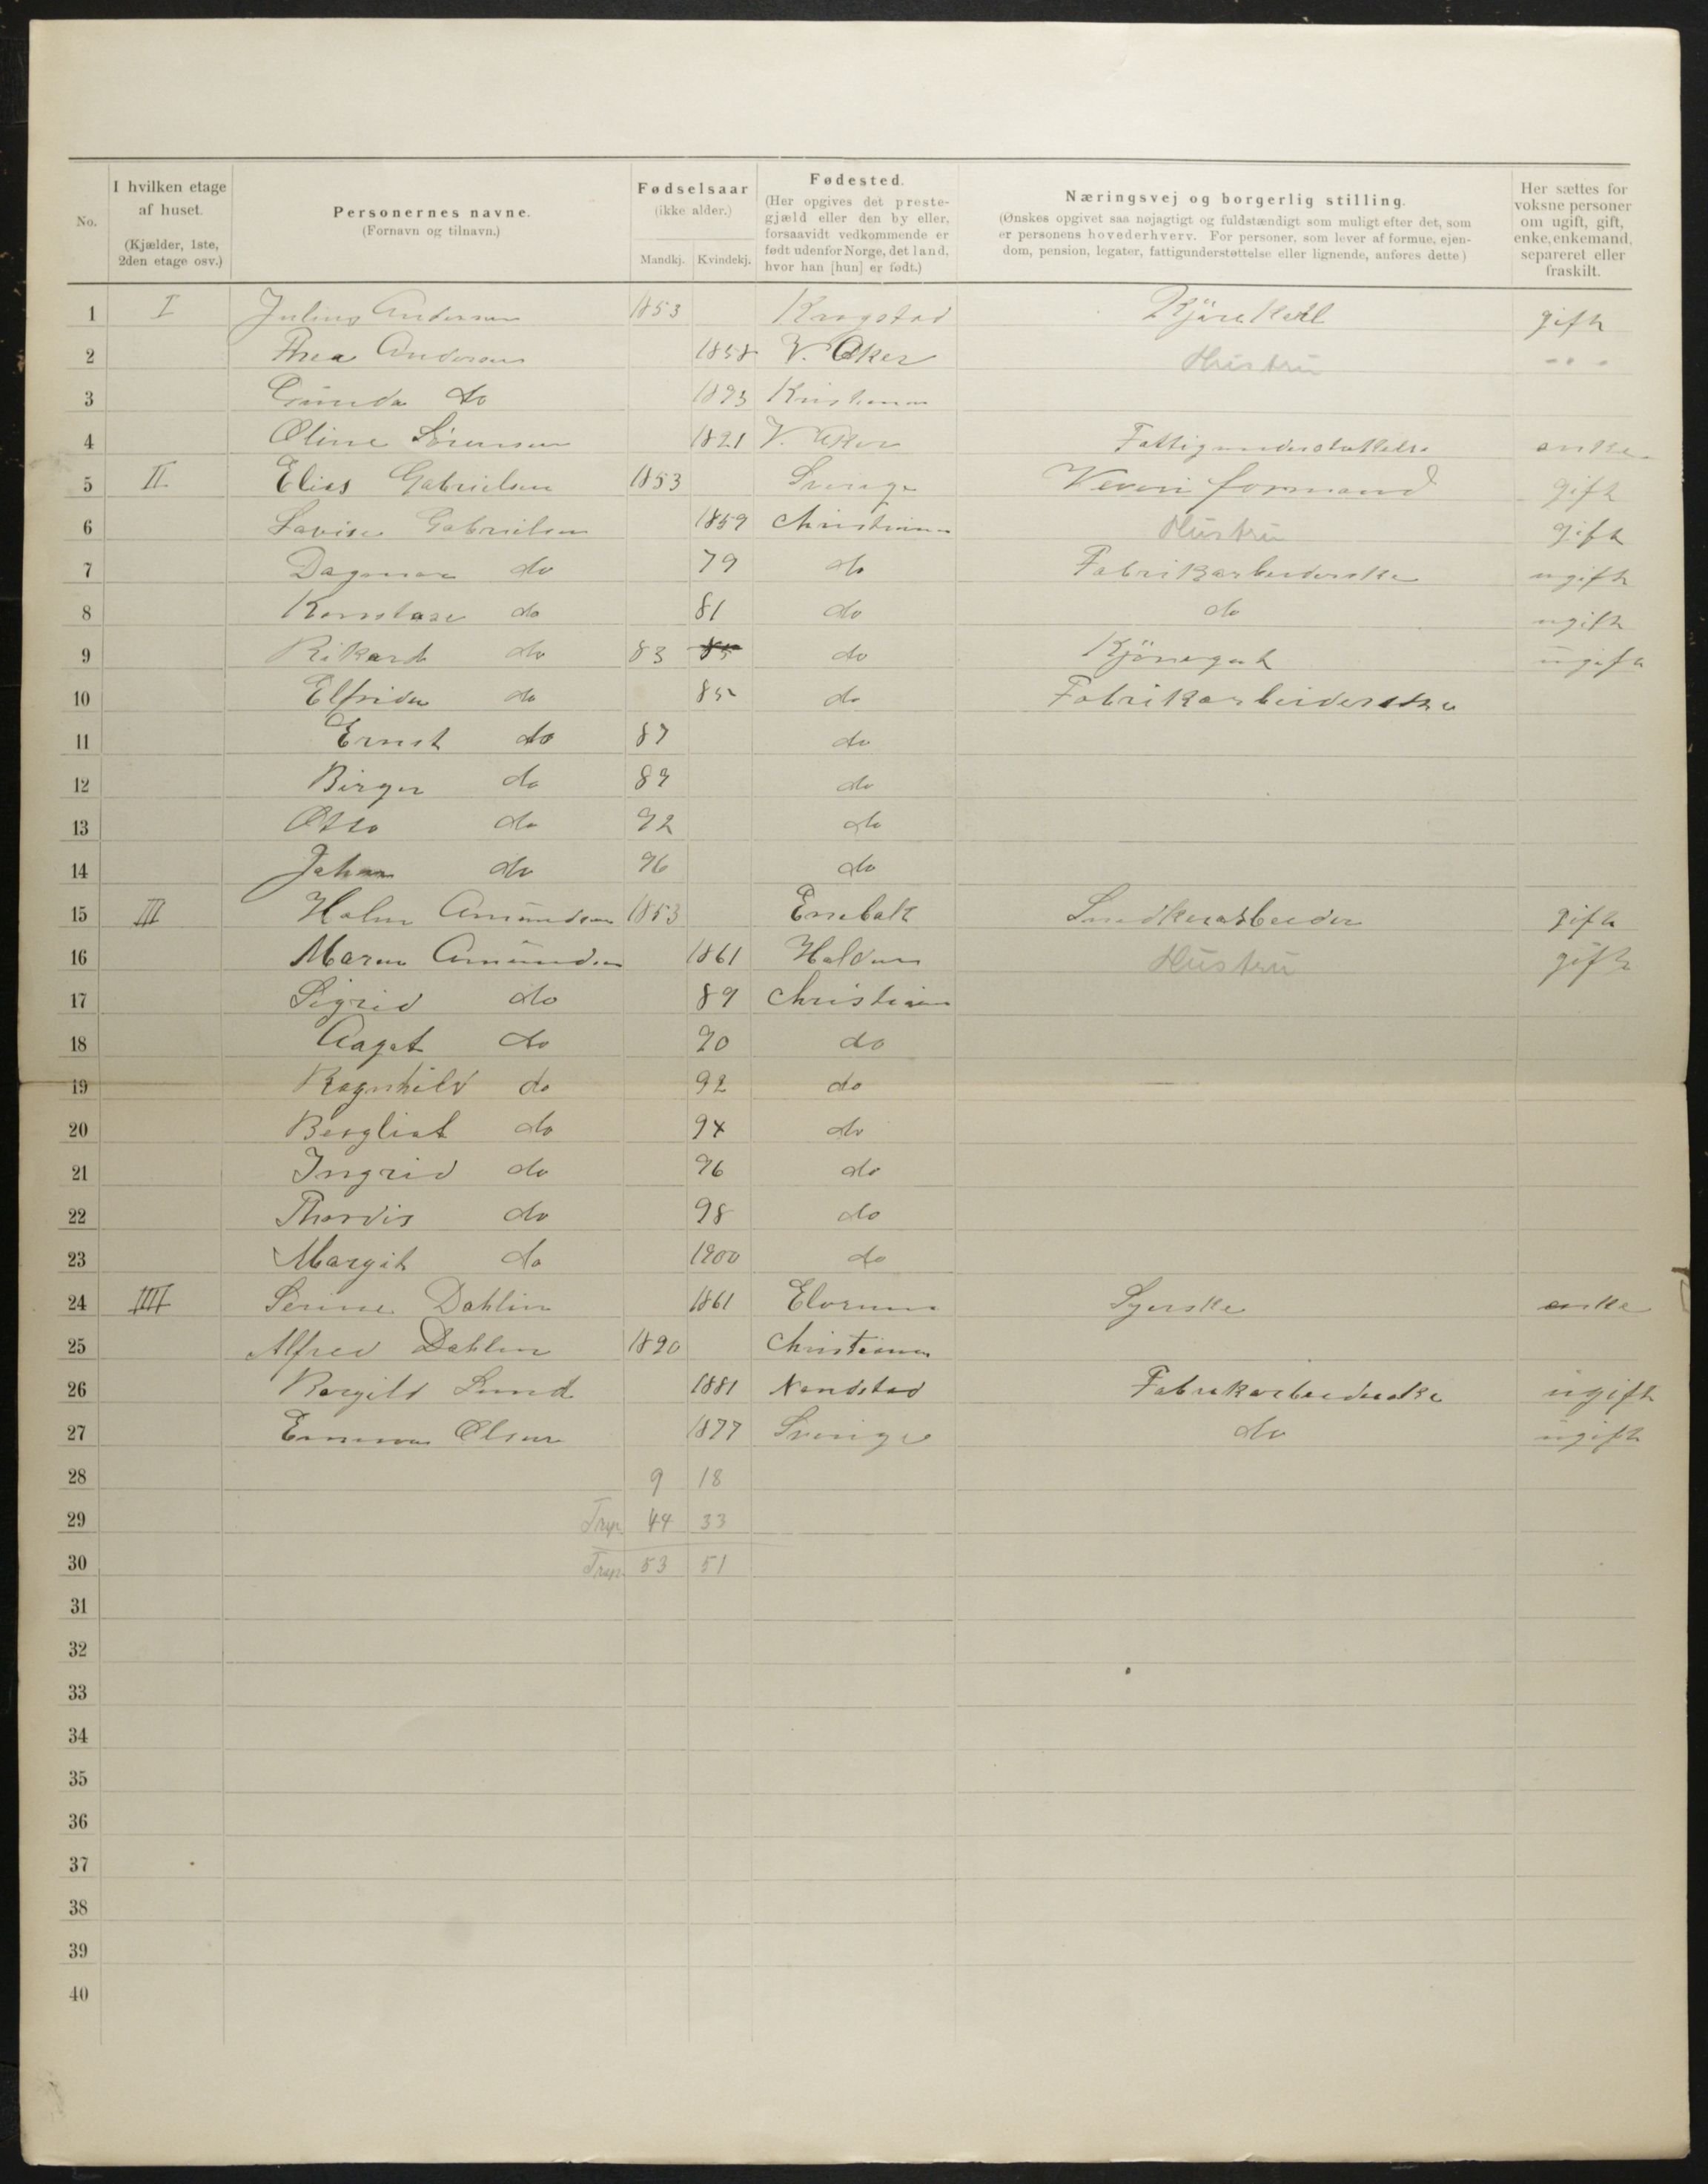 No.
I hvilken etage af huset. (Kjælder, 1ste, 2den etage osv.)
Personernes navne. (Fornavn og tilnavn.)
Fødselsaar (ikke alder.) Mandkj. Kvindekj.
Fødested. (Her opgives det prestegjæld eller den by eller, forsaavidt vedkommende er født udenfor Norge, det land, hvor han [hun] er født.)
Næringsvej og borgerlig stilling. (Ønskes opgivet saa nøjagtigt og fuldstændigt som muligt efter det, som er personens hovederhverv. For personer, som lever af formue, ejendom, pension, legater, fattigunderstøttelse eller lignende, anføres dette.)
Her sættes for voksne personer om ugift, gift, enke, enkemand, separeret eller fraskilt.
1 I Julius Andersen 1853 Krogstad Kjørekarl gift
2 Thea Andersen 1858 V. Aker Hustru
3 Gunda do 1893
4 Oline Sørensen 1821 V. Aker Fattigunderstøttelse enke
5 II Elias Gabrielsen 1853 Sverige Veveri formand gift
6 Lovise Gabrielsen 1859 Christiania Hustru gift
7 Dagmar do 79 do Fabrikarbeiderske ugift
8 do 81 do do ugift
9 Rikard do 83 85 do Kjøregut ugift
10 Elfrida do 85 do Fabrikarbeiderske
11 Ernst do 87 do
12 Birger do 89 do
13 Otto do 92 do
14 Johan do 96 do
15 III Holm Amundsen 1853 Enebak gift
16 Maren Amundsen 1861 Hustru gift
17 Sigrid do 89 Christiania
18 Aagot do 90 do
19 Ragnhild do 92 do
20 Bergliot do 94 do
21 Ingrid do 96 do
22 Thordis do 98 do
23 Margit do 1900 do
24 IIII Serine Dahlin 1861 Elverum Syerske enke
25 Alfred Dahlin 1890 Christiania
26 Borgild Lund 1881 Nandstad Fabrikarbeiderske ugift
27 Emma Olsen 1877 Sverige do ugift
28 9 18
29 44 33
30 53 51
31
32
33
34
35
36
37
38
39
40